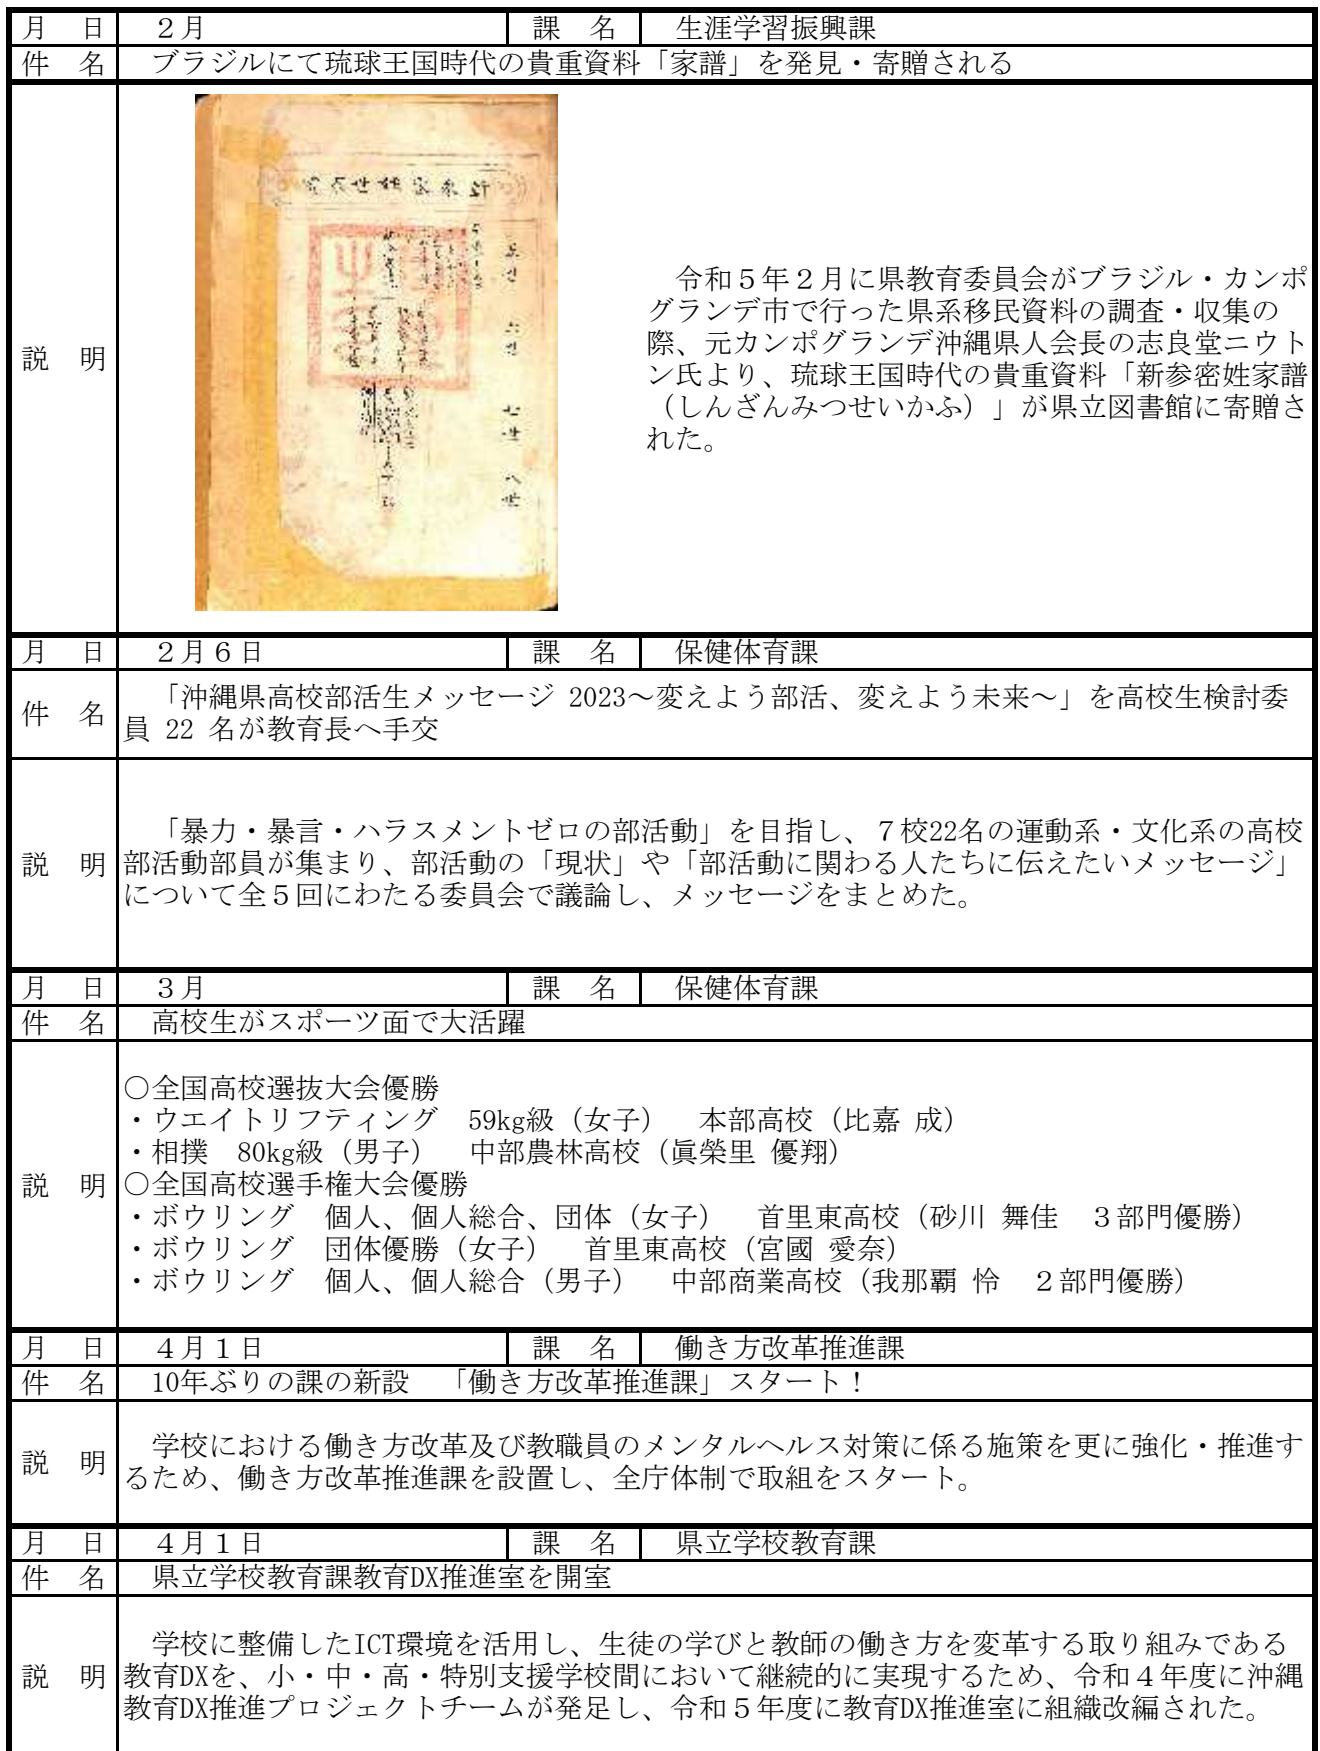 月　日　２月　課　名　生涯学習振興課
件　名　ブラジルにて琉球王国時代の貴重資料「家譜」を発見・寄贈される
説　明
令和５年２月に県教育委員会がブラジル・カンポ
グランデ市で行った県系移民資料の調査・収集の
際、元カンポグランデ沖縄県人会長の志良堂ニウト
ン氏より、琉球王国時代の貴重資料「新参密姓家譜
（しんざんみつせいかふ）」が県立図書館に寄贈さ
れた。
月　日　２月６日　課　名　保健体育課
件　名　「沖縄県高校部活生メッセージ 2023～変えよう部活、変えよう未来～」を高校生検討委
員 22 名が教育長へ手交
説　明　「暴力・暴言・ハラスメントゼロの部活動」を目指し、７校22名の運動系・文化系の高校
部活動部員が集まり、部活動の「現状」や「部活動に関わる人たちに伝えたいメッセージ」
について全５回にわたる委員会で議論し、メッセージをまとめた。
月　日　３月　課　名　保健体育課
件　名　高校生がスポーツ面で大活躍
説　明
○全国高校選抜大会優勝
・ウエイトリフティング　59kg級（女子）　本部高校（比嘉 成）
・相撲　80kg級（男子）　中部農林高校（眞榮里 優翔）
○全国高校選手権大会優勝
・ボウリング　個人、個人総合、団体（女子）　首里東高校（砂川 舞佳　３部門優勝）
・ボウリング　団体優勝（女子）　首里東高校（宮國 愛奈）
・ボウリング　個人、個人総合（男子）　中部商業高校（我那覇 怜　２部門優勝）
月　日　４月１日　課　名　働き方改革推進課
件　名　10年ぶりの課の新設　「働き方改革推進課」スタート！
説　明　学校における働き方改革及び教職員のメンタルヘルス対策に係る施策を更に強化・推進す
るため、働き方改革推進課を設置し、全庁体制で取組をスタート。
月　日　４月１日　課　名　県立学校教育課
件　名　県立学校教育課教育DX推進室を開室
説　明　学校に整備したICT環境を活用し、生徒の学びと教師の働き方を変革する取り組みである
教育DXを、小・中・高・特別支援学校間において継続的に実現するため、令和４年度に沖縄
教育DX推進プロジェクトチームが発足し、令和５年度に教育DX推進室に組織改編された。